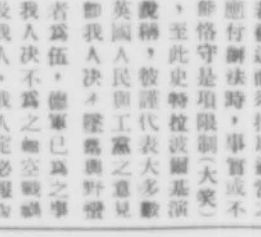 應付辦法時，事實或不
能恪守是項限制（大笑）
，至此史特拉波爾基演
說稱，彼謹代表大多數
英國人民與工黨之意見
卽我人決不墮落與野蠻
者爲伍，德軍已爲之事
我人決不爲之 空戰
我人 我人定必報